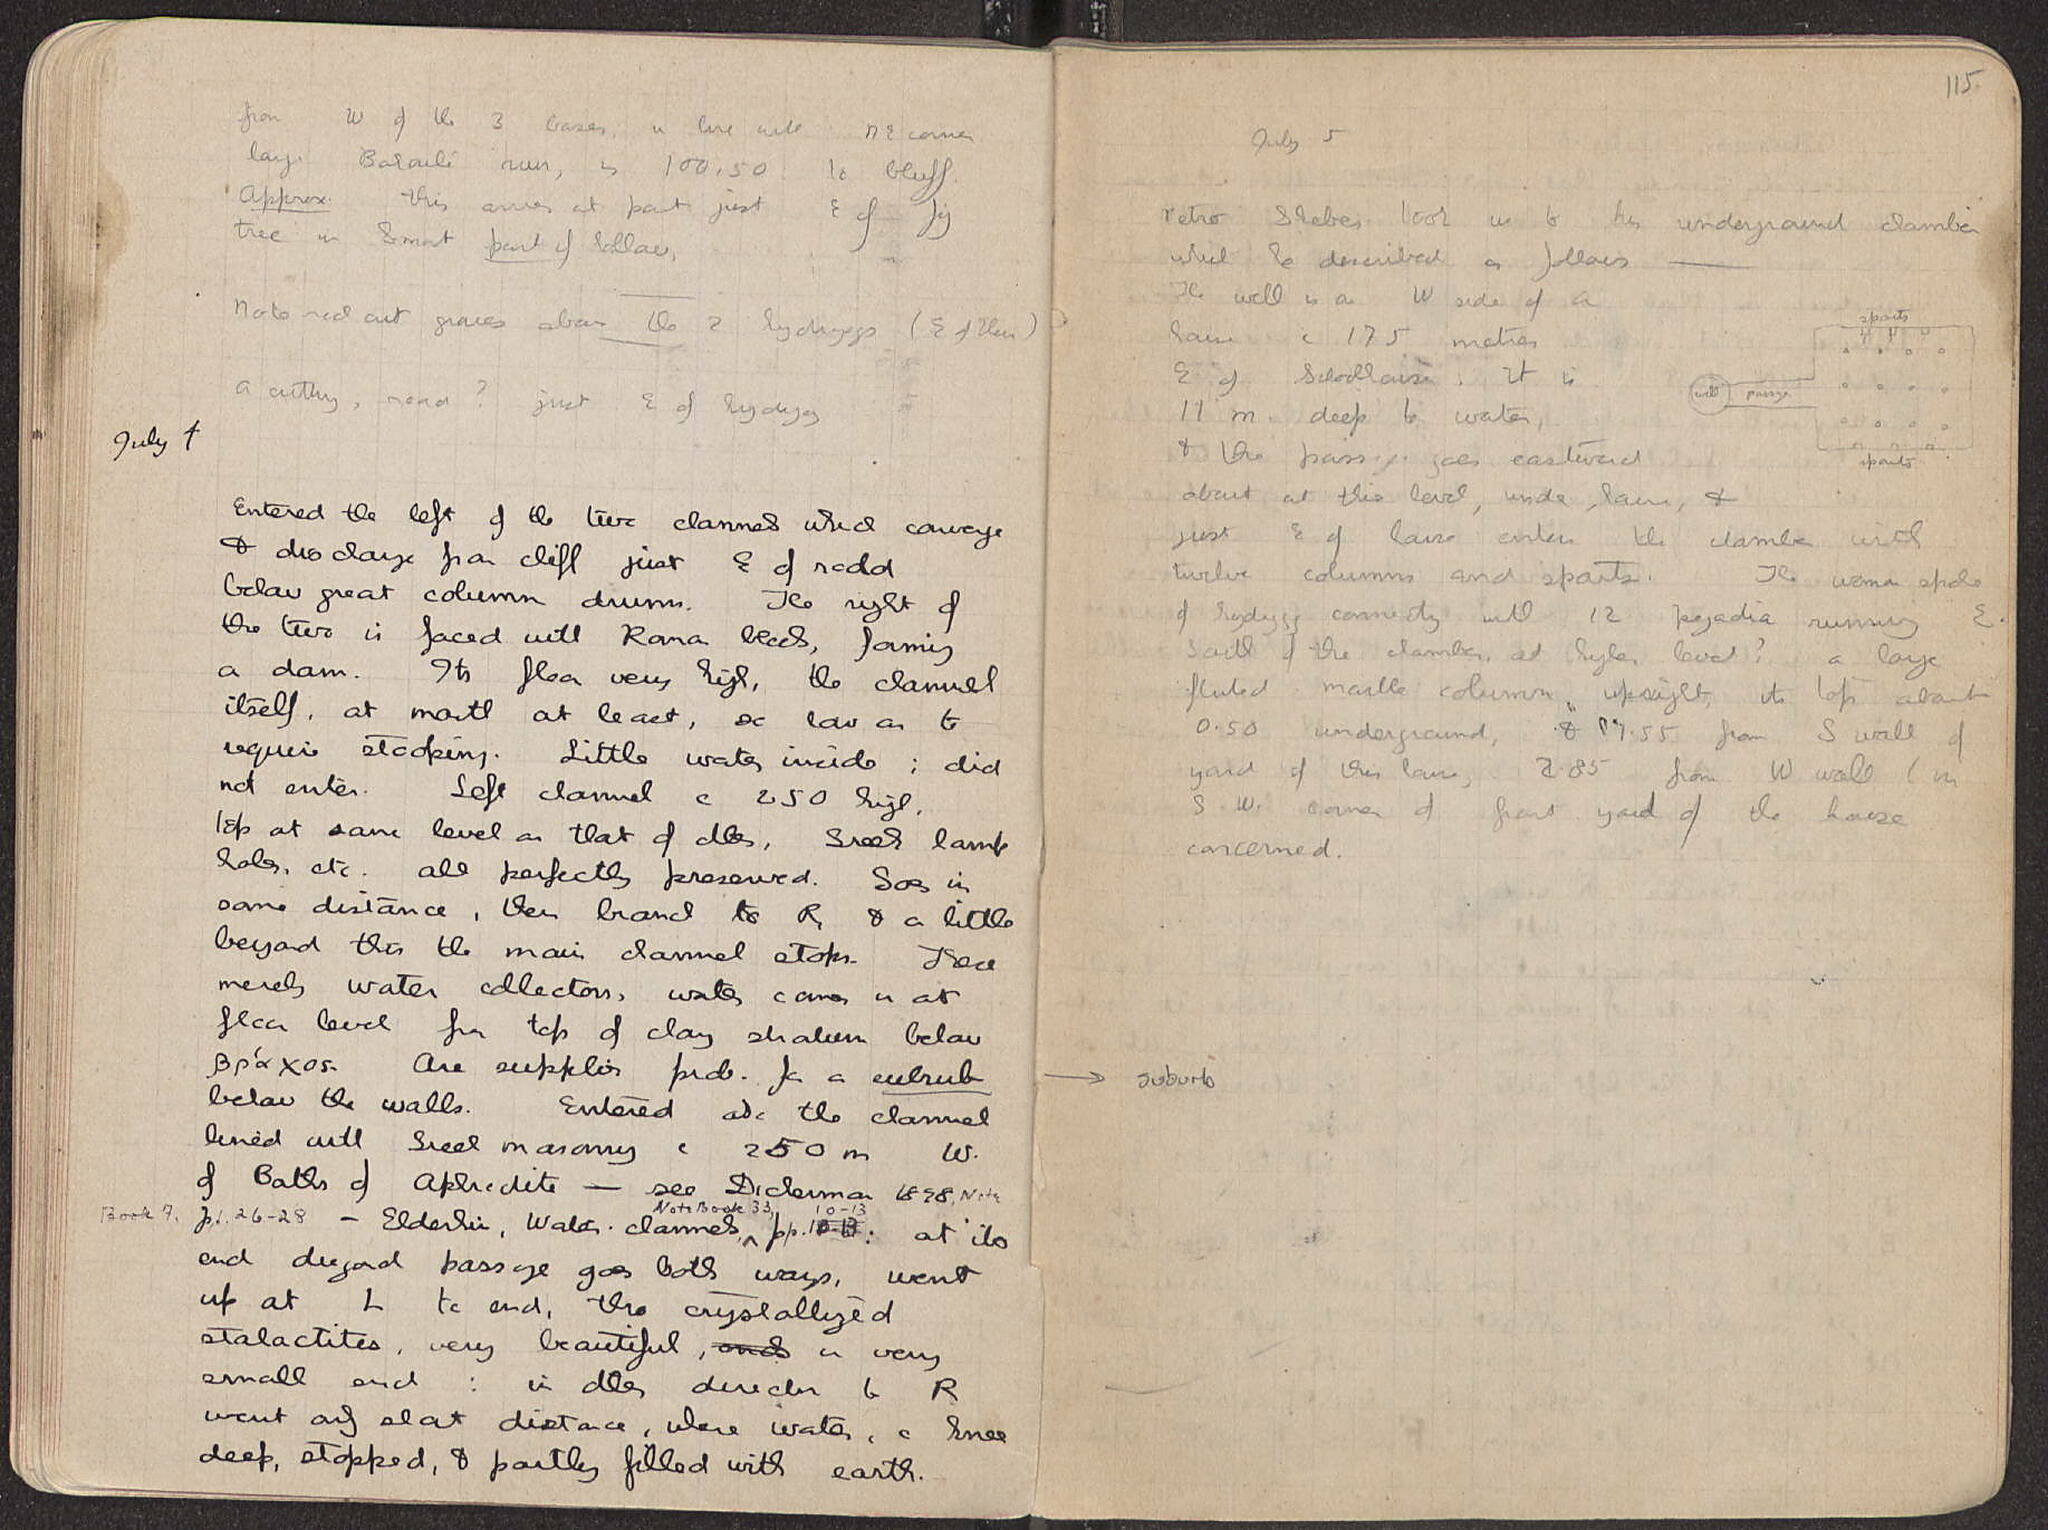 from W of the 3 bases, in line with NE corner
large Basilica ruin, is 100.50 to bluff.
Approx. this comes at part just E of fig
tree in part of hollow.
Note rock cut graves above the 2 hydrages (E of them)
a cutting, road? just E of hydrage
July 4
Entered the left of the two channels which converge
& discharge from cliff just E of road
below great column drums. The right of
the two is faced with Roman blocks, forming
a dam. Its floor very high, the channel
itself, at mouth at least, so low as to
require stooping. Little water inside; did
not enter. Left channel c 250 high,
top at same level as that of other, Greek lamp
holes, etc. all perfectly preserved. Goes in
some distance, then branch to R, & a little
beyond this the main channel stops. These
merely water collectors, water comes in at
floor level from top of clay stratum below
βράχος. Are supplies prob. for a suburb
below the walls. Entered also the channel
lined with Greek masonry c 250 m W.
of Baths of Aphrodite — see Dickerman 1898, Note
Book 7, pp. 26-28 — Elderkin, Water channels, Note Book 33, pp. 10-13 : at its
end passage goes both ways, went
up at L to end, the crystallized
stalactites, very beautiful, ends in very
small end : in other direction to R
went only short distance, where water, c knee
deep, stopped, & partly filled with earth.
115
July 5
Petro took us to his underground chamber
which he described as follows —
The well is on W side of a
house c 175 metres
E of Schoolhouse. It is
11 m. deep to water,
& the passage goes eastward
about at this level, under house, &
just E of house enters the chamber with
twelve columns and spouts. The woman spoke
of hydrage connecting with 12 pegadia running E.
South of the chamber, at higher level? a large
fluted marble column, upright, its top about
0.50 underground, & 17.55 from S wall of
yard of this house, 2.85 from W wall (in
S.W. corner of front yard of the house
concerned.
spouts
well passage
spouts
→ suburb